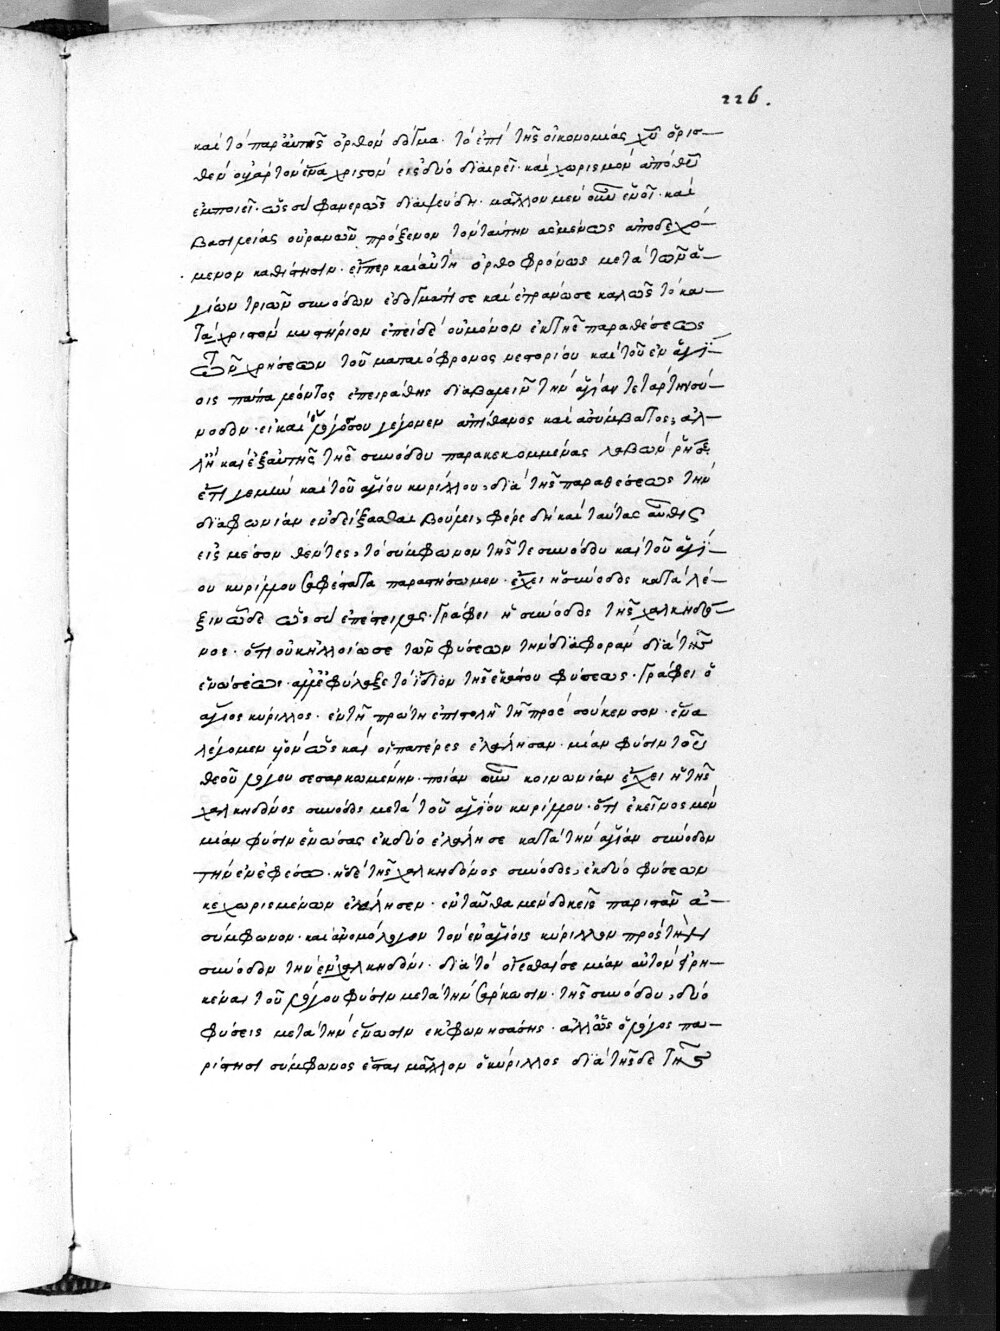 226.
καὶ τὸ παρ' αὐτῆς ὀρθὸν δόγμα. τὸ ἐπὶ τῆς οἰκονομίας χυ ὁρισ-
θὲν οὐχὶ τὸν ἕνα χριστὸν εἰς δύο διαιρεῖ. καὶ χωρισμὸν ἀπὸ θυ
ἐμποιεῖ. ὡς σὺ φανερῶς διαψεύδη. μᾶλλον μὲν οὖν ἑνοῖ. καὶ
βασιλείας οὐρανῶν πρόξενον τὸν ταύτην ἀσμένως ἀποδεχό-
μενον καθίστησιν. εἴπερ καὶ αὐτὴ ὀρθοφρόνως μετὰ τῶν ἁ-
γίων τριῶν συνόδων ἐδογμάτισε καὶ ἐτράνωσε καλῶς τὸ κα-
τὰ χριστὸν μυστήριον ἐπεὶ δὲ οὐ μόνον ἐκ τῆς παραθέσεως
τῶν χρήσεων τοῦ ματαιόφρονος νεστορίου καὶ τοῦ ἐν ἁγί-
οις πάπα λέοντος ἐπειράθης διαβαλεῖν τὴν ἁγίαν τετάρτην σύ-
νοδον. εἰ καὶ ὁ λόγος σου γέγονεν ἀπίθανος καὶ ἀσύμβατος, ἀλ-
λ' ἤδη καὶ ἐξ αὐτῆς τῆς συνόδου παρακεκομμένας λαβὼν ῥήσεις
ἔτι γε μὴν καὶ τοῦ ἁγίου κυρίλλου, διὰ τῆς παραθέσεως τὴν
διαφωνίαν ἐνδείξασθαι βούλει, φέρε δὴ καὶ ταύτας αὖθις
εἰς μέσον θέντες, τὸ σύμφωνον τῆς τε συνόδου καὶ τοῦ ἁγί-
ου κυρίλλου σαφέστατα παραστήσωμεν. ἔχει ἡ σύνοδος κατὰ λέ-
ξιν ὧδε ὡς σὺ ἐπέσειρας. Γράφει ἡ σύνοδος τῆς χαλκηδό-
νος. ὅτι οὐκ ἠλλοίωσε τῶν φύσεων τὴν διαφορὰν διὰ τῆς
ἑνώσεως. ἀλλ' ἐφύλαξε τὸ ἴδιον τῆς ἑκάστου φύσεως. Γράφει ὁ
ἅγιος κύριλλος. ἐν τῇ πρώτῃ ἐπιστολῇ τῇ πρὸς σούκενσον. ἕνα
λέγομεν υἱὸν ὡς καὶ οἱ πατέρες ἐλάλησαν. μίαν φύσιν τοῦ
θεοῦ λόγου σεσαρκωμένην. ποίαν οὖν κοινωνίαν ἔχει ἡ τῆς
χαλκηδόνος σύνοδος μετὰ τοῦ ἁγίου κυρίλλου. ὅτι ἐκεῖνος μὲν
μίαν φύσιν ἑνώσας ἐκ δύο ἐλάλησε κατὰ τὴν ἁγίαν σύνοδον
τὴν ἐν ἐφέσω. ἡ δὲ τῆς χαλκηδόνος σύνοδος, ἐκ δύο φύσεων
κεχωρισμένων ἐλάλησεν. ἐνταῦθα μὲν δοκεῖς παριστᾶν ἀ-
σύμφωνον. καὶ ἀνομόλογον τὸν ἐν ἁγίοις κύριλλον πρὸς τὴν
σύνοδον τὴν ἐν χαλκηδόνι. διὰ τὸ οἴεσθαί σε μίαν αὐτὸν εἰρη-
κέναι τοῦ λόγου φύσιν μετὰ τὴν σάρκωσιν. τῆς συνόδου, δύο
φύσεις μετὰ τὴν ἕνωσιν ἐκφωνησάσης. ἀλλ' ὡς ὁ λόγος πα-
ρίστησι σύμφωνος ἔσται μᾶλλον ὁ κύριλλος διὰ τῆς δε τῆς